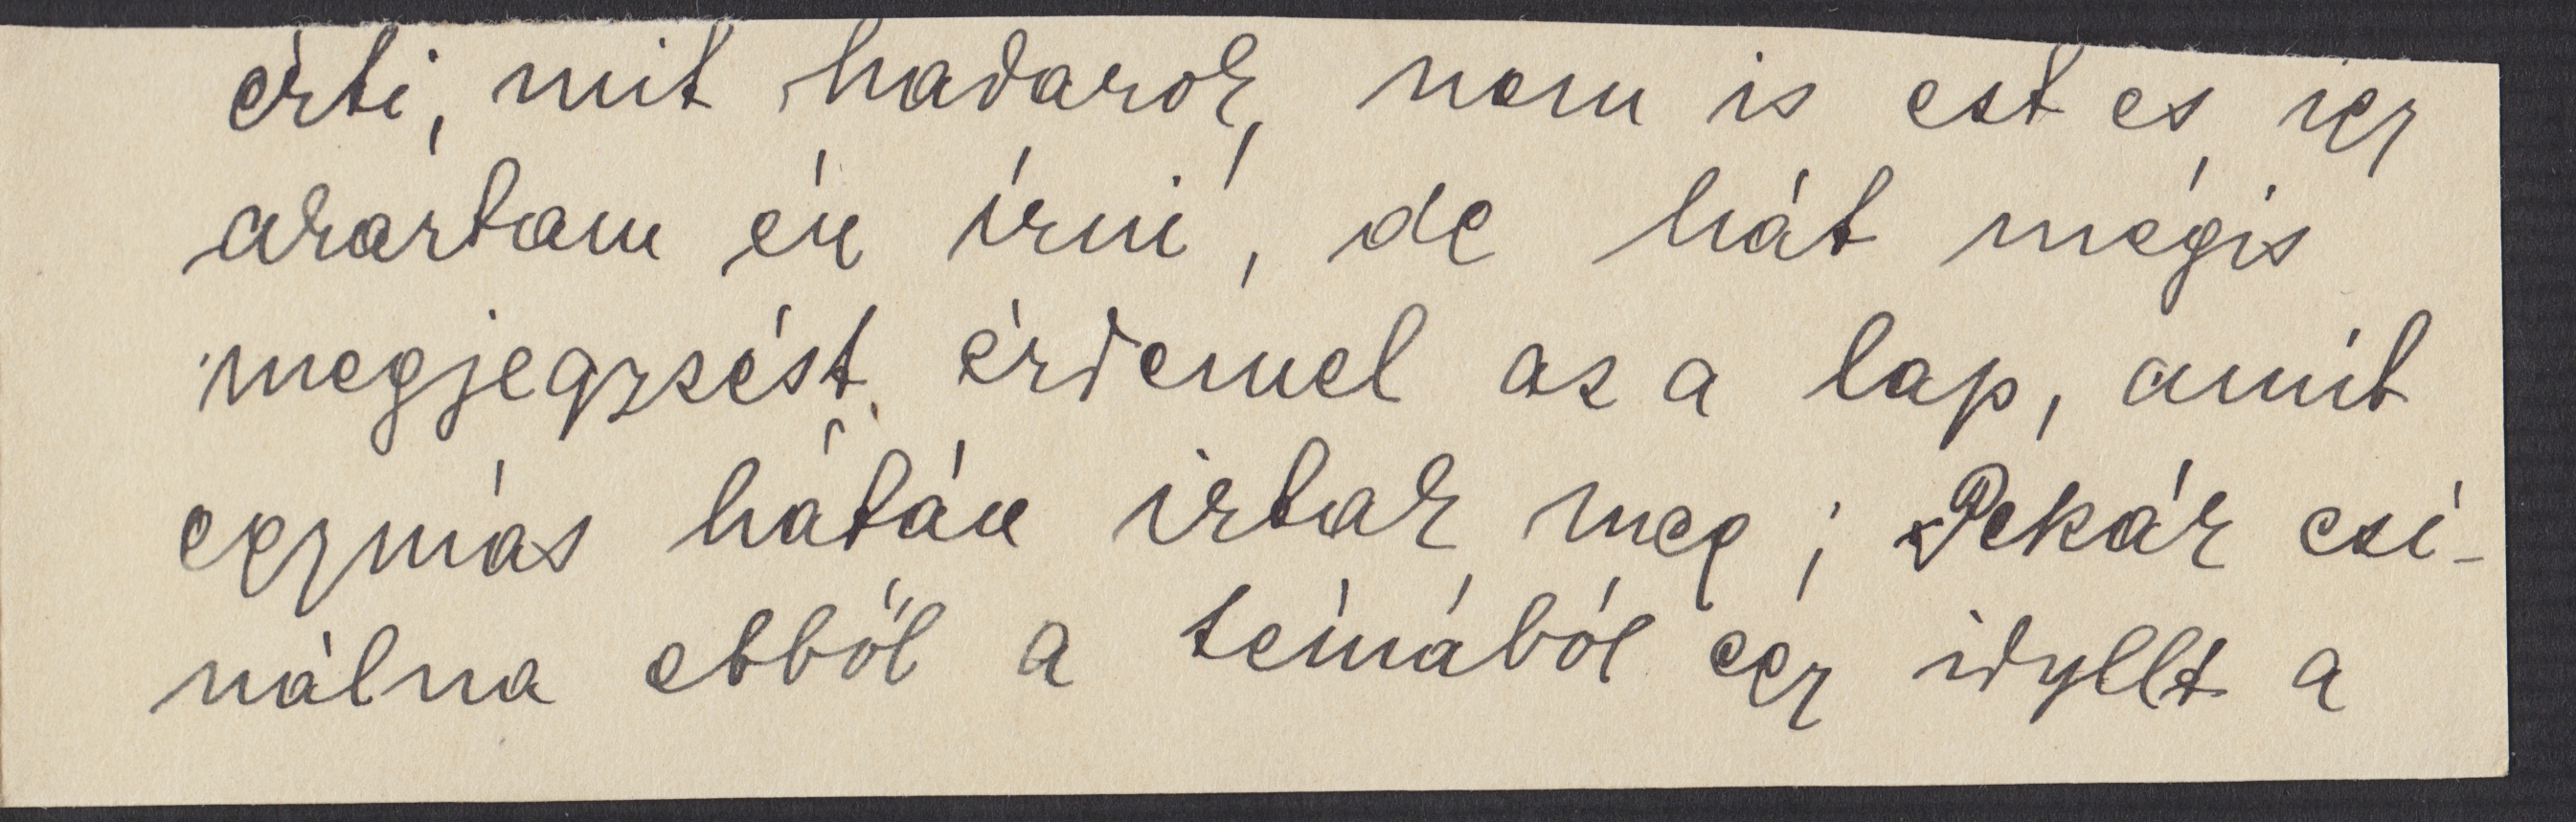 érti, mit hadarok, nem is ezt és így
akartam én írni, de hát mégis
megjegyzést érdemel az a lap, amit
egymás hátán irtak meg; Pekár csi-
nálna ebből a témából egy idyllt a